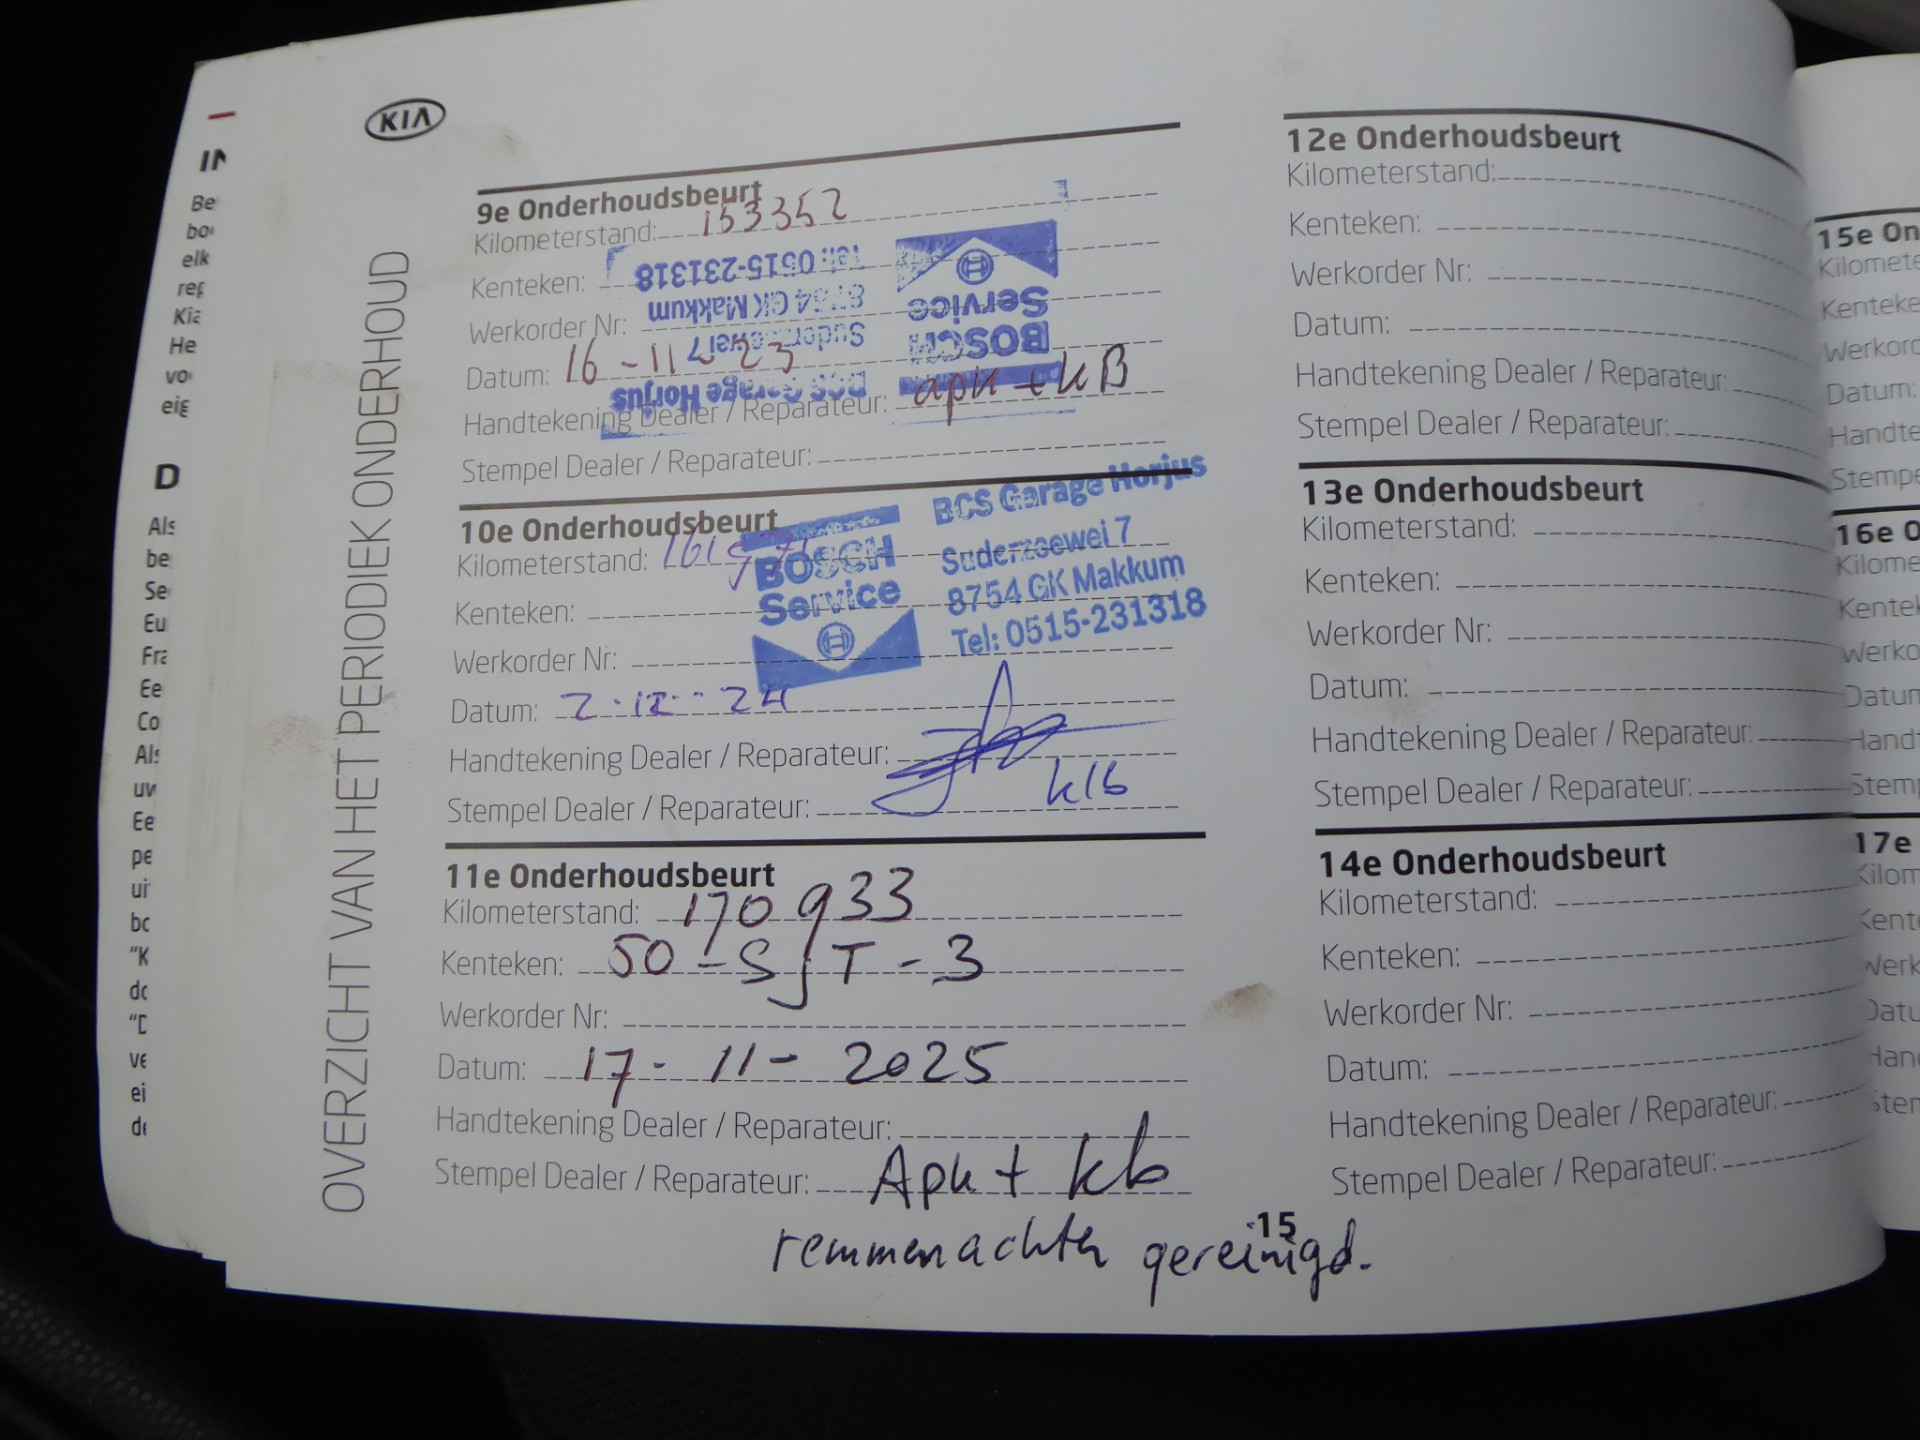 KIA
OVERZICHT VAN HET PERIODIEK ONDERHOUD
9e Onderhoudsbeurt
Kilometerstand: 153352
Kenteken:
Werkorder Nr:
Datum: 16-11-23
Handtekening Dealer / Reparateur: apk + kB
Stempel Dealer / Reparateur:
BCS Garage Horjus
Suderzeewei 7
8754 GK Makkum
Tel: 0515-231318
BOSCH
Service
10e Onderhoudsbeurt
Kilometerstand:
Kenteken:
Werkorder Nr:
Datum: 2-12-24
Handtekening Dealer / Reparateur:
Stempel Dealer / Reparateur: klb
BOSCH
Service
BCS Garage Horjus
Suderzeewei 7
8754 GK Makkum
Tel: 0515-231318
11e Onderhoudsbeurt
Kilometerstand: 170933
Kenteken: 50-SJT-3
Werkorder Nr:
Datum: 17-11-2025
Handtekening Dealer / Reparateur:
Stempel Dealer / Reparateur: Apk + kb
remmen achter gereinigd.
15
12e Onderhoudsbeurt
Kilometerstand:
Kenteken:
Werkorder Nr:
Datum:
Handtekening Dealer / Reparateur:
Stempel Dealer / Reparateur:
13e Onderhoudsbeurt
Kilometerstand:
Kenteken:
Werkorder Nr:
Datum:
Handtekening Dealer / Reparateur:
Stempel Dealer / Reparateur:
14e Onderhoudsbeurt
Kilometerstand:
Kenteken:
Werkorder Nr:
Datum:
Handtekening Dealer / Reparateur:
Stempel Dealer / Reparateur:
15e On
16e O
17e